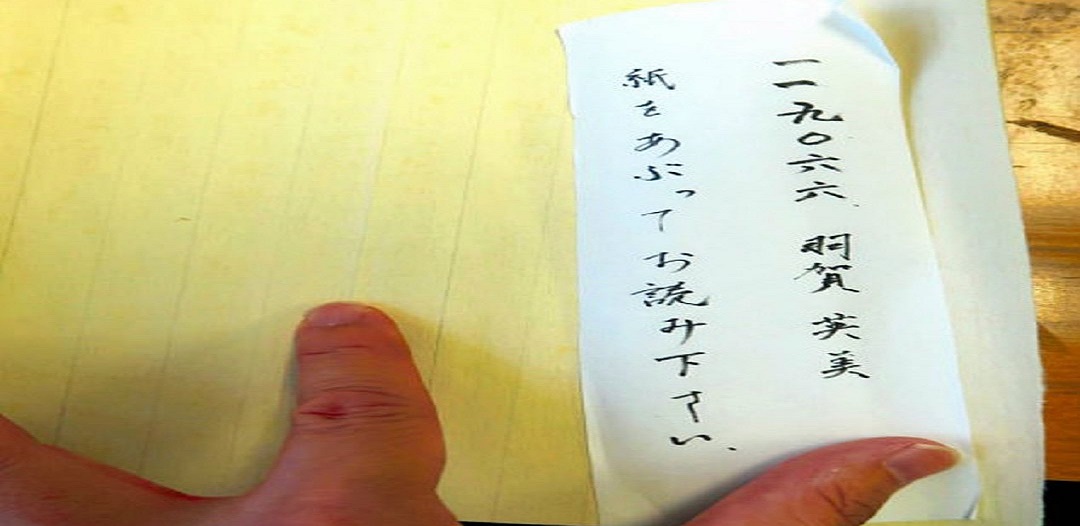 一一九〇六六 羽賀 英美
紙をあぶってお読み下さい、